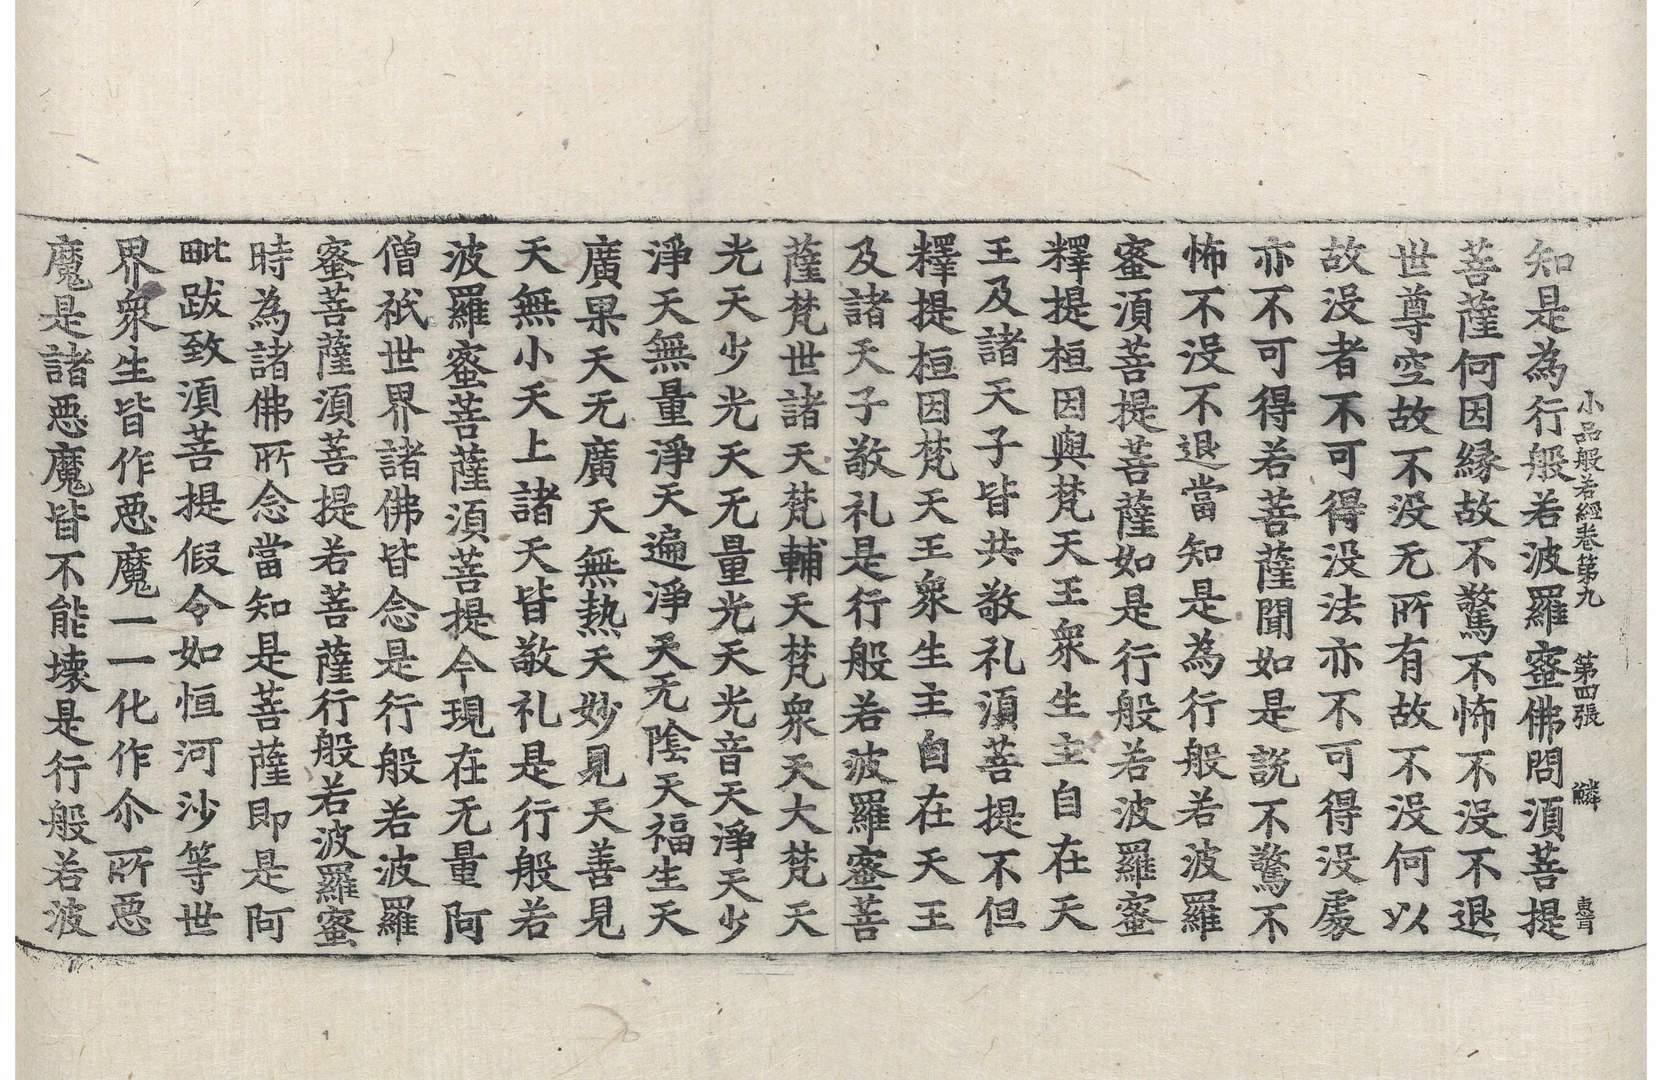 小品般若經卷第九 第四張 鱗
知是為行般若波羅蜜佛問湏菩提
菩薩何因縁故不驚不怖不没不退
世尊空故不没无所有故不没何以
故没者不可得没法亦不可得没處
亦不可得若菩薩聞如是說不驚不
怖不没不退當知是為行般若波羅
蜜湏菩提菩薩如是行般若波羅蜜
釋提桓因與梵天王衆生主自在天
王及諸天子皆共敬礼湏菩提不但
釋提桓因梵天王衆生主自在天王
及諸天子敬礼是行般若波羅蜜菩
薩梵世諸天梵輔天梵衆天大梵天
光天少光天无量光天光音天淨天少
淨天無量淨天遍淨天无陰天福生天
廣果天无廣天無熱天妙見天善見
天無小天上諸天皆敬礼是行般若
波羅蜜菩薩湏菩提今現在无量阿
僧祇世界諸佛皆念是行般若波羅
蜜菩薩湏菩提若菩薩行般若波羅蜜
時為諸佛所念當知是菩薩即是阿
毗跋致湏菩提假令如恒河沙等世
界衆生皆作惡魔一一化作尒所惡
魔是諸惡魔皆不能壊是行般若波